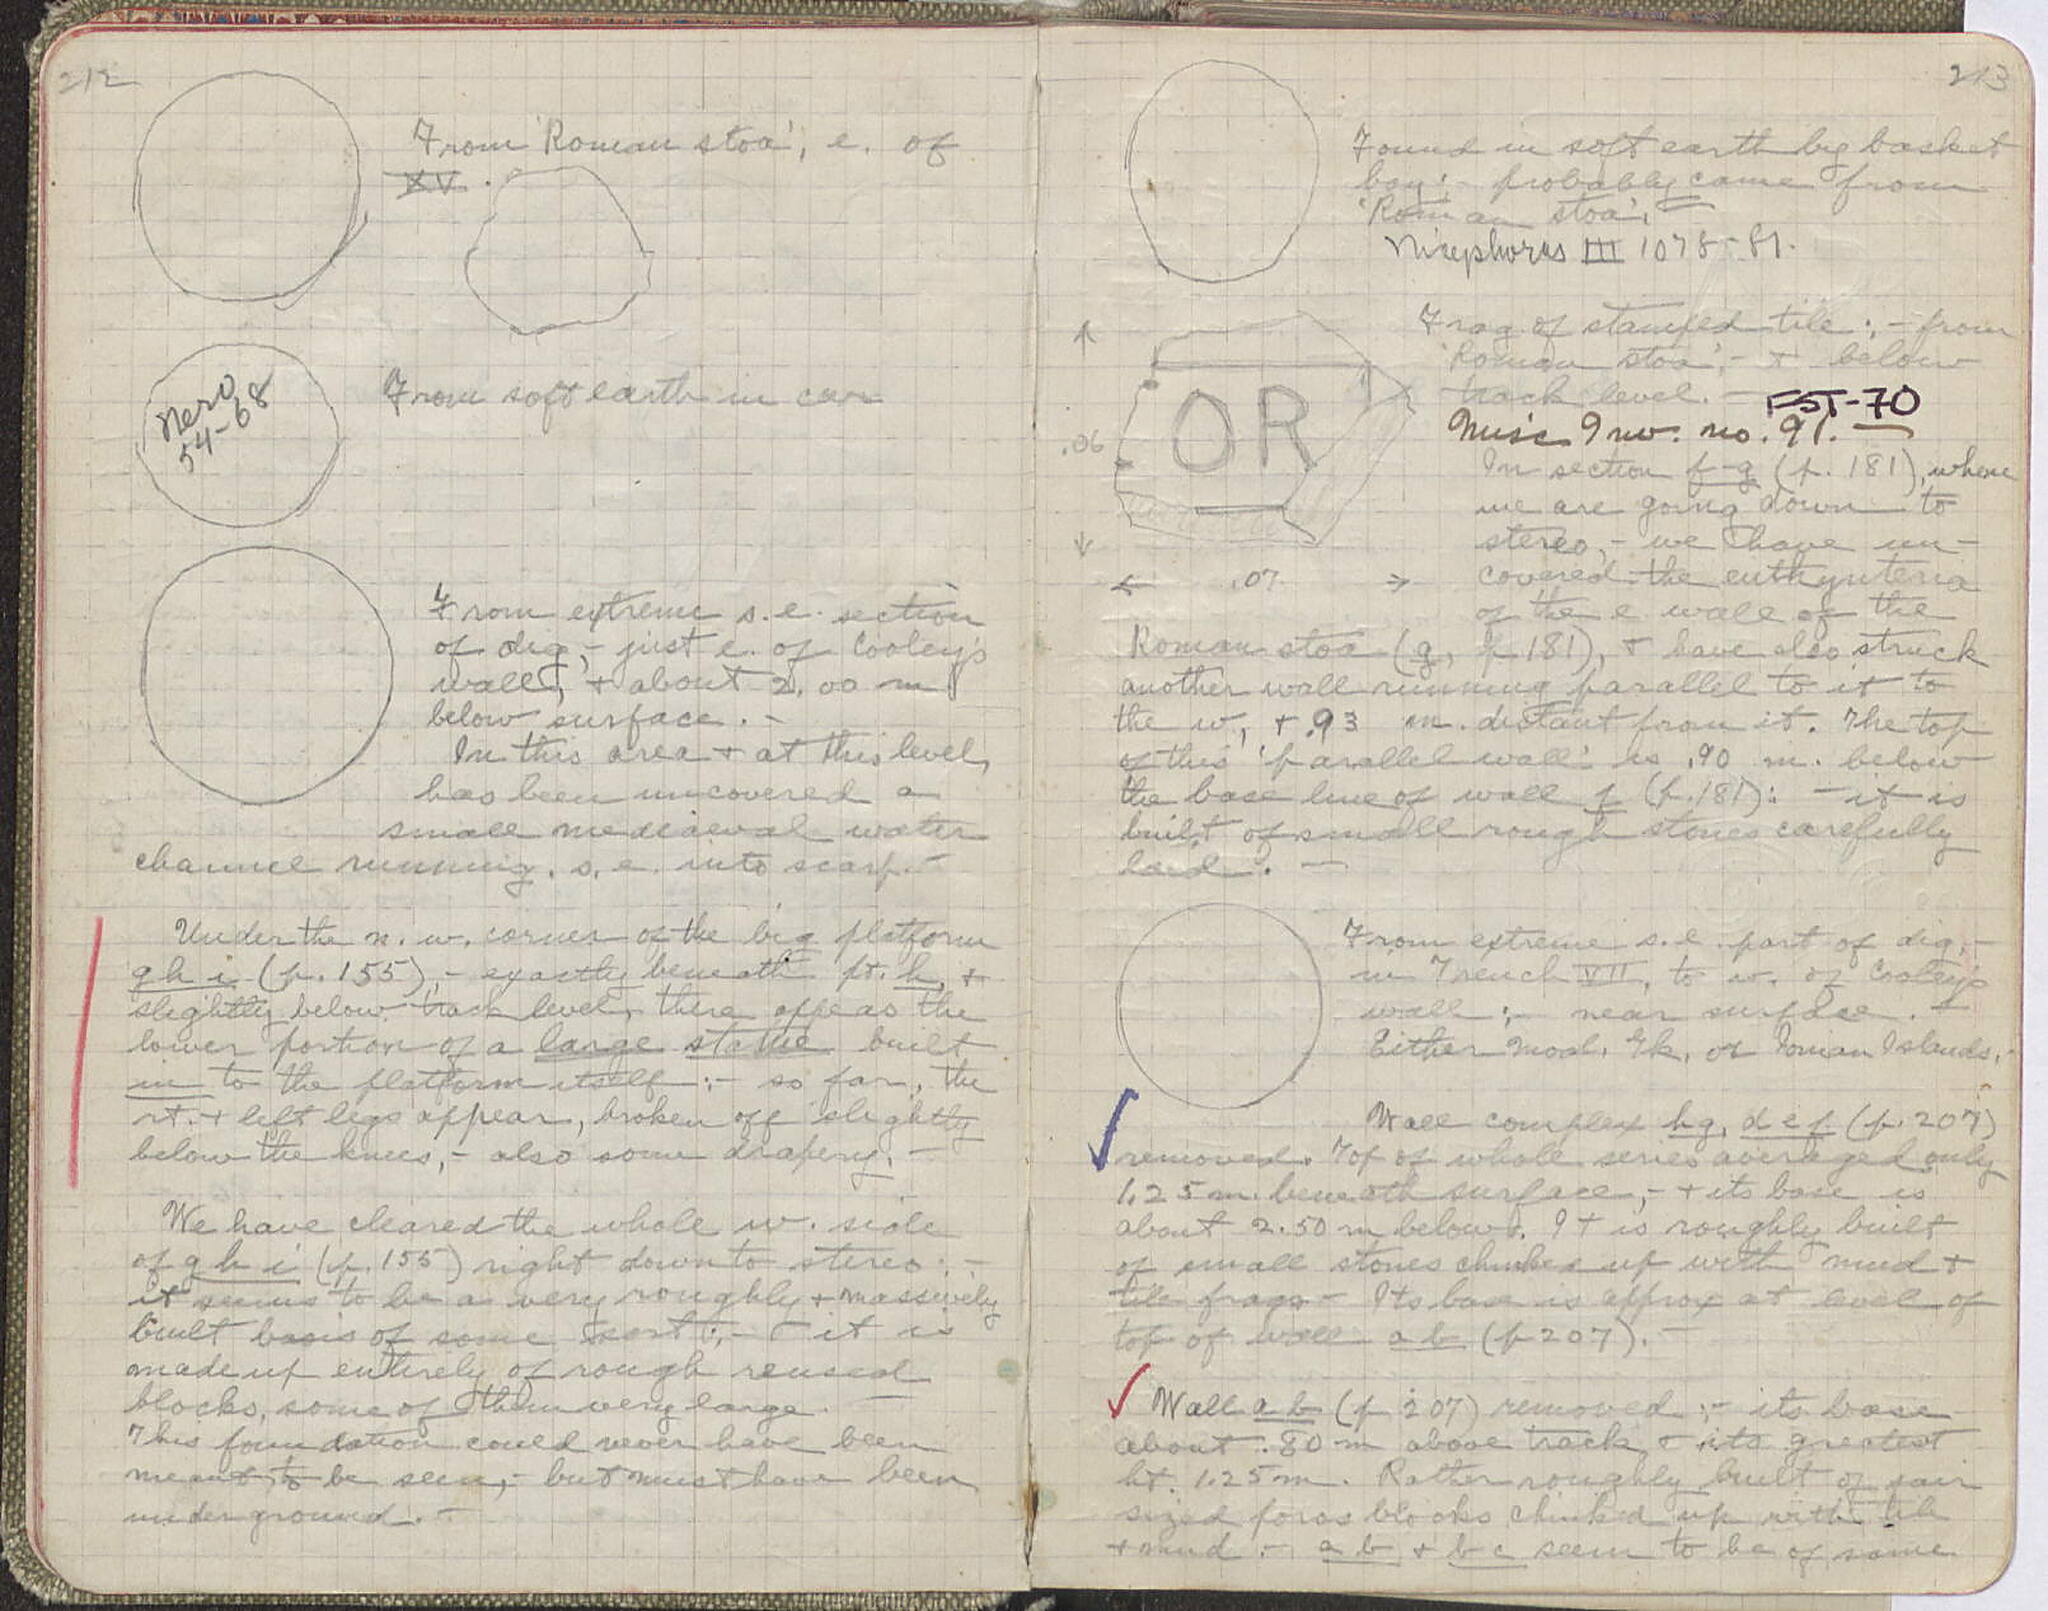 212
From 'Roman stoa', e. of
XV.
Nero
54-68
From soft earth in car
From extreme s.e. section
of dig, - just e. of Cooley's
wall, + about 2.00 m
below surface. -
In this area + at this level,
has been uncovered a
small mediaeval water
channel running s.e. into scarp. -
Under the n.w. corner of the big platform
g h i (p. 155), - exactly beneath pt. h, +
slightly below track level, there appears the
lower portion of a large statue built
in to the platform itself: - so far, the
rt. + left legs appear, broken off slightly
below the knees, - also some drapery. -
We have cleared the whole w. side
of g h i (p. 155) right down to stereo: -
it seems to be a very roughly + massively
built basis of some sort; - it is
made up entirely of rough reused
blocks, some of them very large.
This foundation could never have been
meant to be seen, - but must have been
underground. -
213
Found in soft earth by basket
boy: - probably came from
'Roman stoa'. -
Nicephorus III 1078-81.
Frag of stamped tile: - from
'Roman stoa', - + below
track level. -
FST-70
Misc Inv. no. 91.
OR
.06
.07
In section f-g (p. 181), where
we are going down to
stereo, - we have un-
covered the euthynteria
of the e wall of the
Roman stoa (g, p 181), + have also struck
another wall running parallel to it to
the w, + .93 m. distant from it. The top
of this 'parallel wall' is .90 m. below
the base line of wall f (p. 181): - it is
built of small rough stones carefully
laid. -
From extreme s.e. part of dig, -
in Trench VII, to w. of Cooley's
wall: - near surface. -
Either Mod. Gk. or Ionian Islands. -
Wall complex hg, d e f (p. 207)
removed. Top of whole series averaged only
1.25 m. beneath surface, - + its base is
about 2.50 m below. It is roughly built
of small stones chinked up with mud +
tile frags - Its base is approx at level of
top of wall a b (p 207). -
Wall a b (p 207) removed: - its base
about .80 m above track, + its greatest
ht. 1.25 m. Rather roughly built of fair
sized poros blocks chinked up with tile
+ mud: - a b + b c seem to be of same